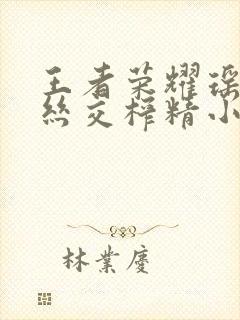 王者荣耀瑶
丝交榨精小
林業慶